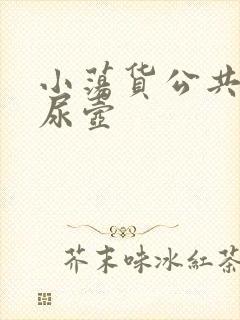 小蕩货公共
尿壺
芥末味冰紅茶